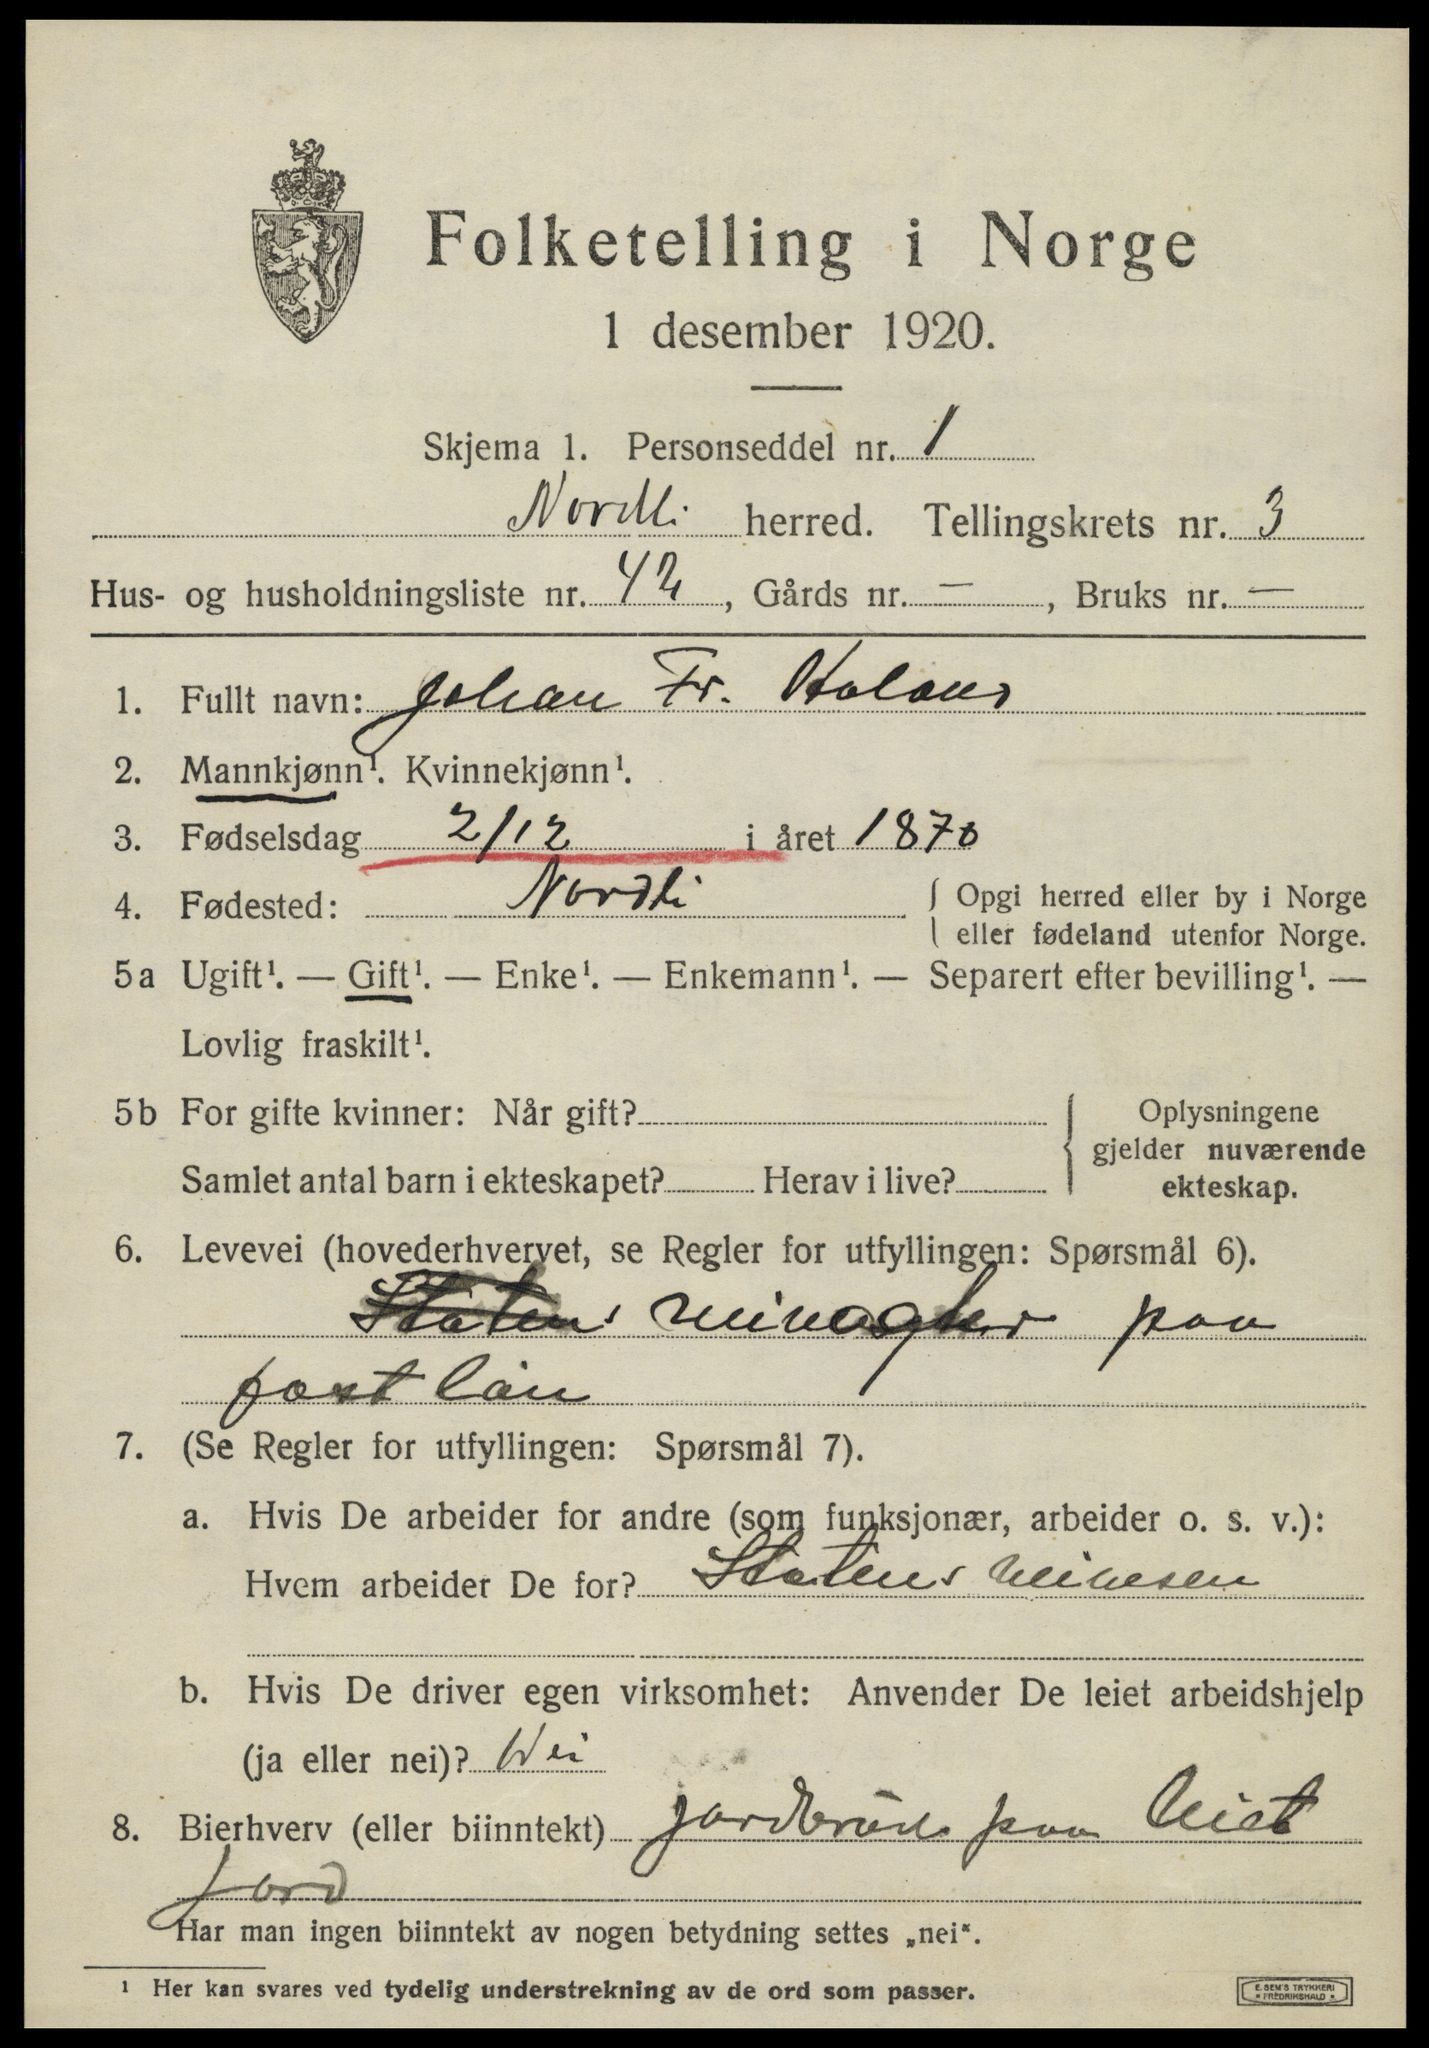 Folketelling i Norge
1 desember 1920.
Skjema 1. Personseddel nr. 1
Nordli herred. Tellingskrets nr. 3
Hus- og husholdningsliste nr. 42, Gårds nr. —, Bruks nr. —
1. Fullt navn: Johan Fr. Holand
2. Mannkjønn¹. Kvinnekjønn¹.
3. Fødselsdag 2/12 i året 1870
4. Fødested: Nordli { Opgi herred eller by i Norge
eller fødeland utenfor Norge.
5a Ugift¹. — Gift¹. — Enke¹. — Enkemann¹. — Separert efter bevilling¹. —
Lovlig fraskilt¹.
5b For gifte kvinner: Når gift? { Oplysningene
gjelder nuværende
Samlet antal barn i ekteskapet? Herav i live? ekteskap.
6. Levevei (hovederhvervet, se Regler for utfyllingen: Spørsmål 6).
Statens paa
fast
7. (Se Regler for utfyllingen: Spørsmål 7).
a. Hvis De arbeider for andre (som funksjonær, arbeider o. s. v.):
Hvem arbeider De for? Statens
b. Hvis De driver egen virksomhet: Anvender De leiet arbeidshjelp
(ja eller nei)? Nei
8. Bierhverv (eller biinntekt) jordbruk paa leiet
jord
Har man ingen biinntekt av nogen betydning settes „nei“.
¹ Her kan svares ved tydelig understrekning av de ord som passer.
E. SEM'S TRYKKERI
FREDRIKSHALD